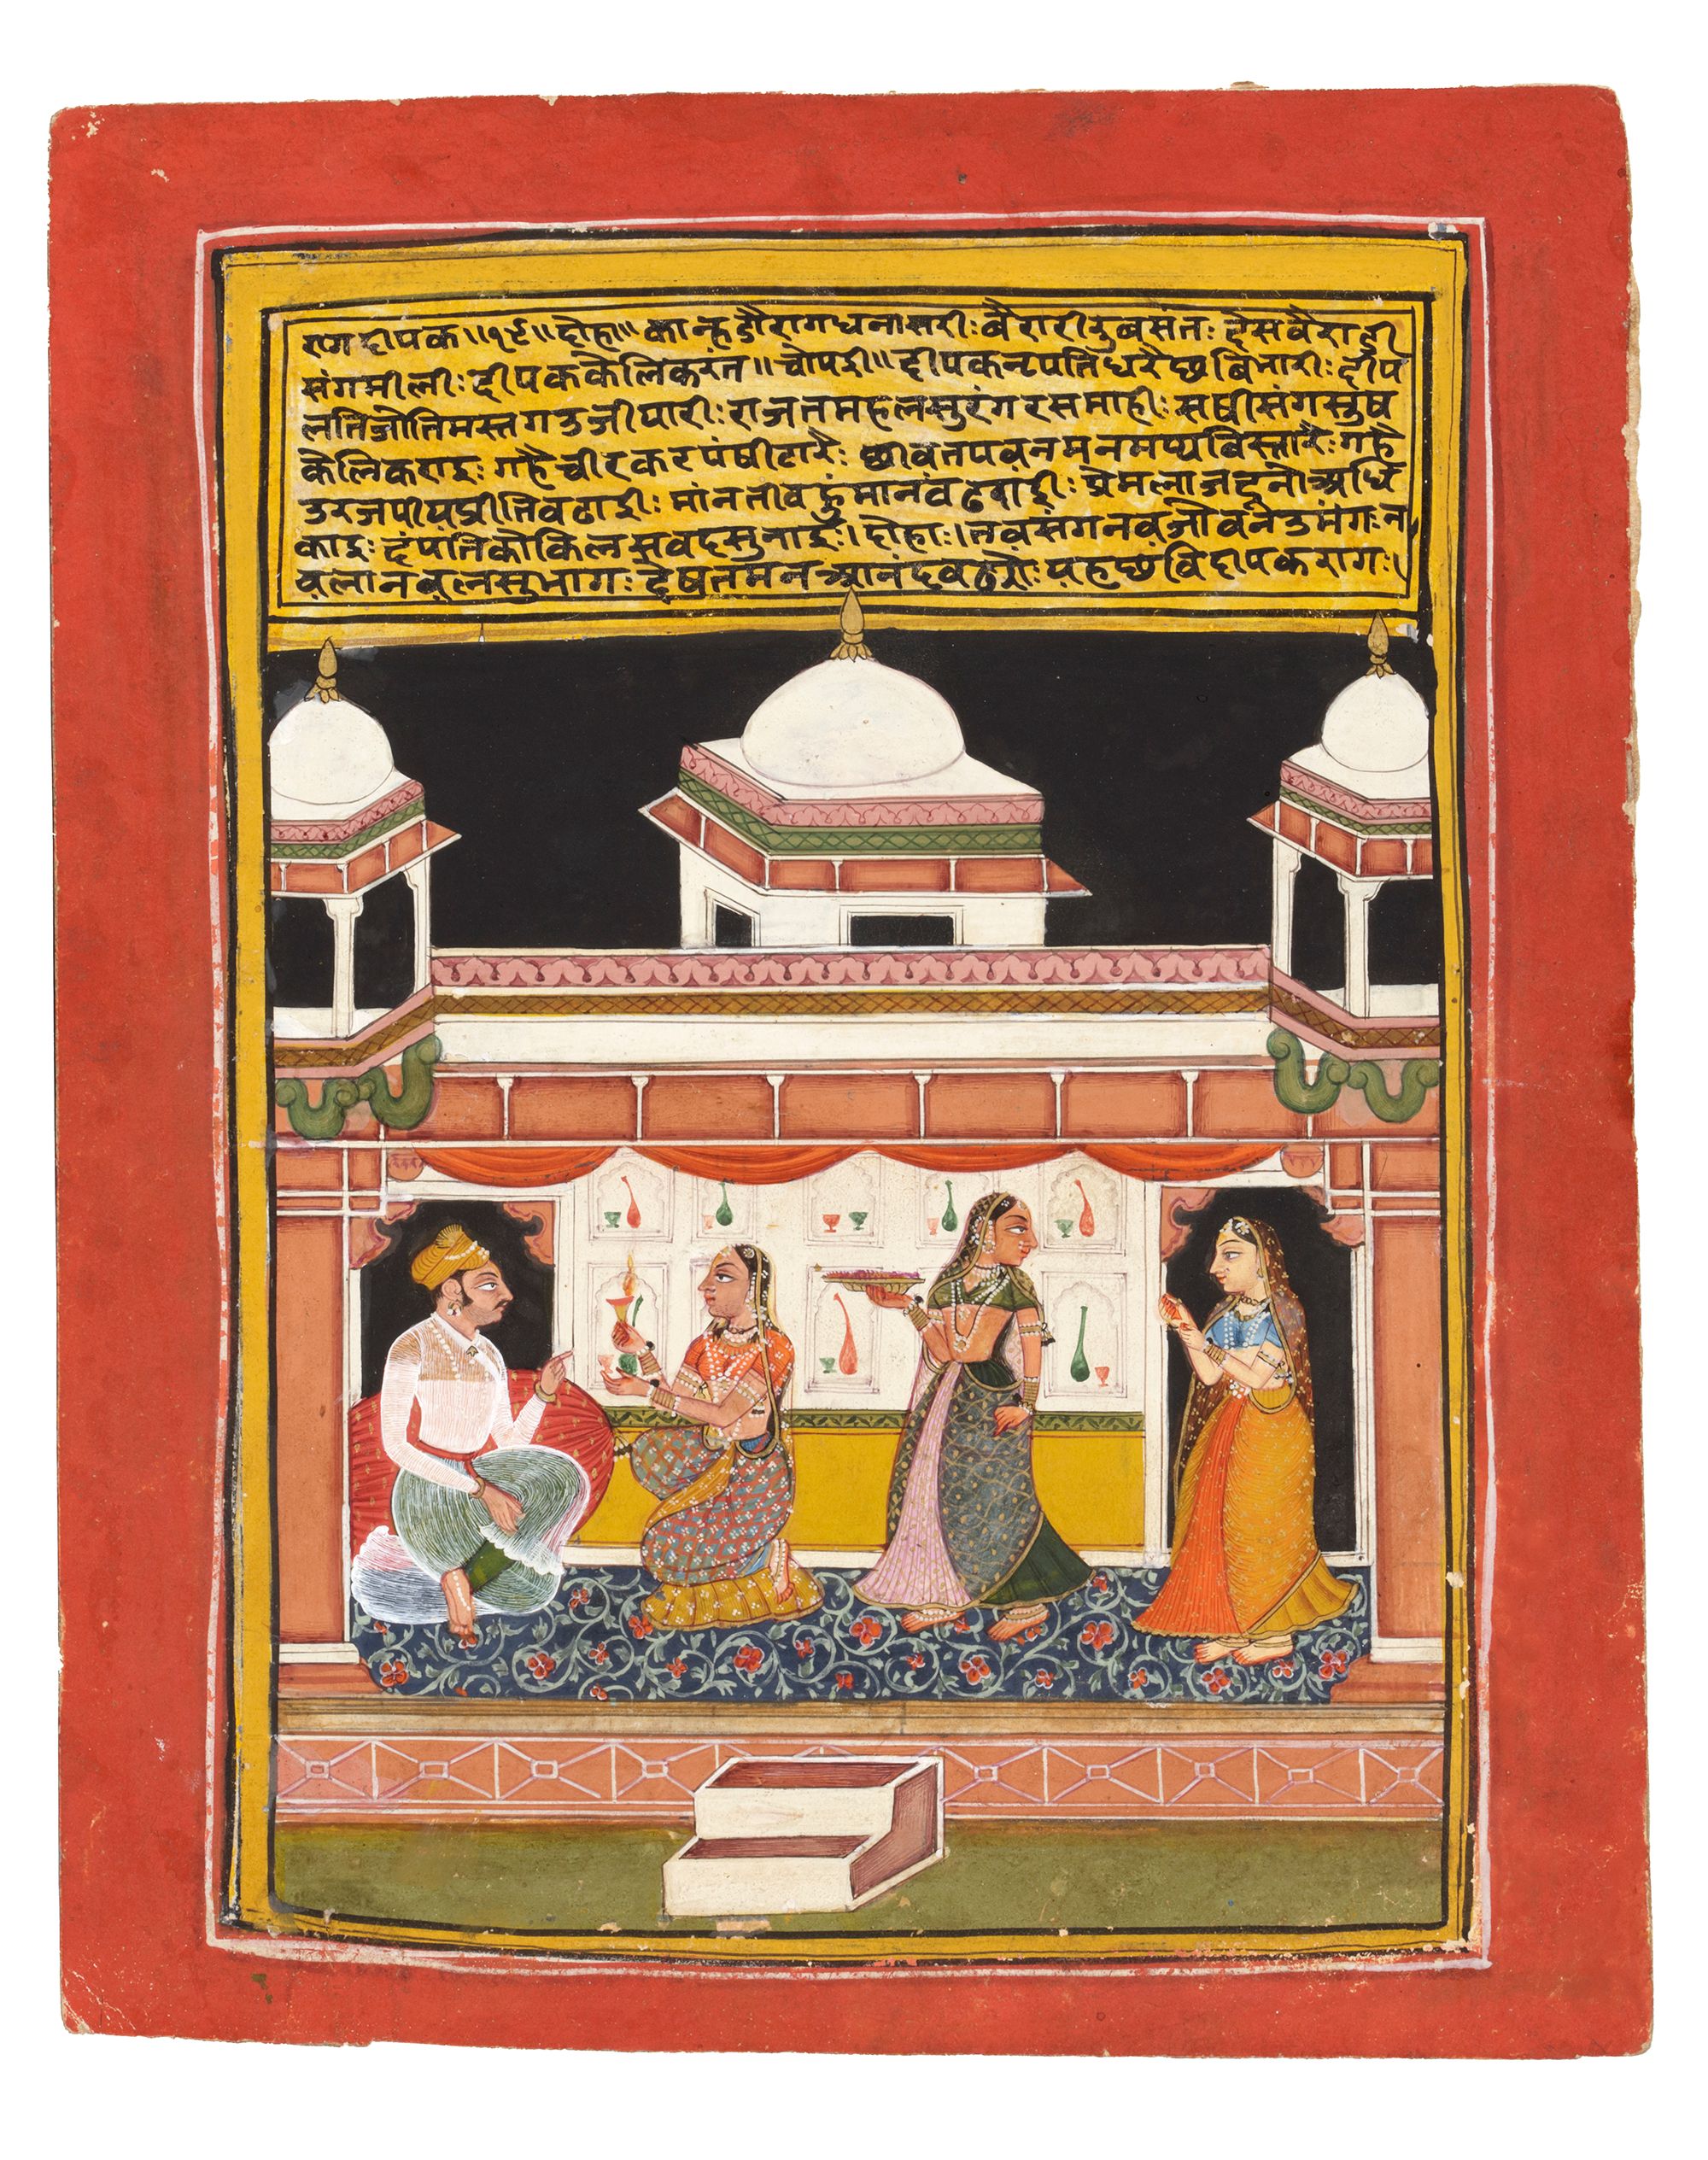 राग दीपक ॥१९॥ दोहा॥ कान्हडौ राग धनासरी: बैरारी रु बसंत: देस वैराडी
संग मीली: दीपक केलि करंत॥ चोपई॥ दीपक नृपति धरै छबि भारी: दीप
लति जोति मस्तग उजीयारी: राजत महल सुरंग रस माही: सषी संग सुष
केलि कराइ: गहै चीर कर पंषी टारै: छीवत पवन मन मध्य बिस्तारै: गहै
उरज पीय प्रीति वढाई: मांनती वहुं मान वढवाई: प्रेम लाज दूनौ अधि
काइ: दंपति कोकिल सवद सुनाई:। दोहा:। नव संग नव जोवन उमंग: न
वला नवल सुभाग: देषत मन आनंद वढ्यौ: यह छवि दीपक राग:।